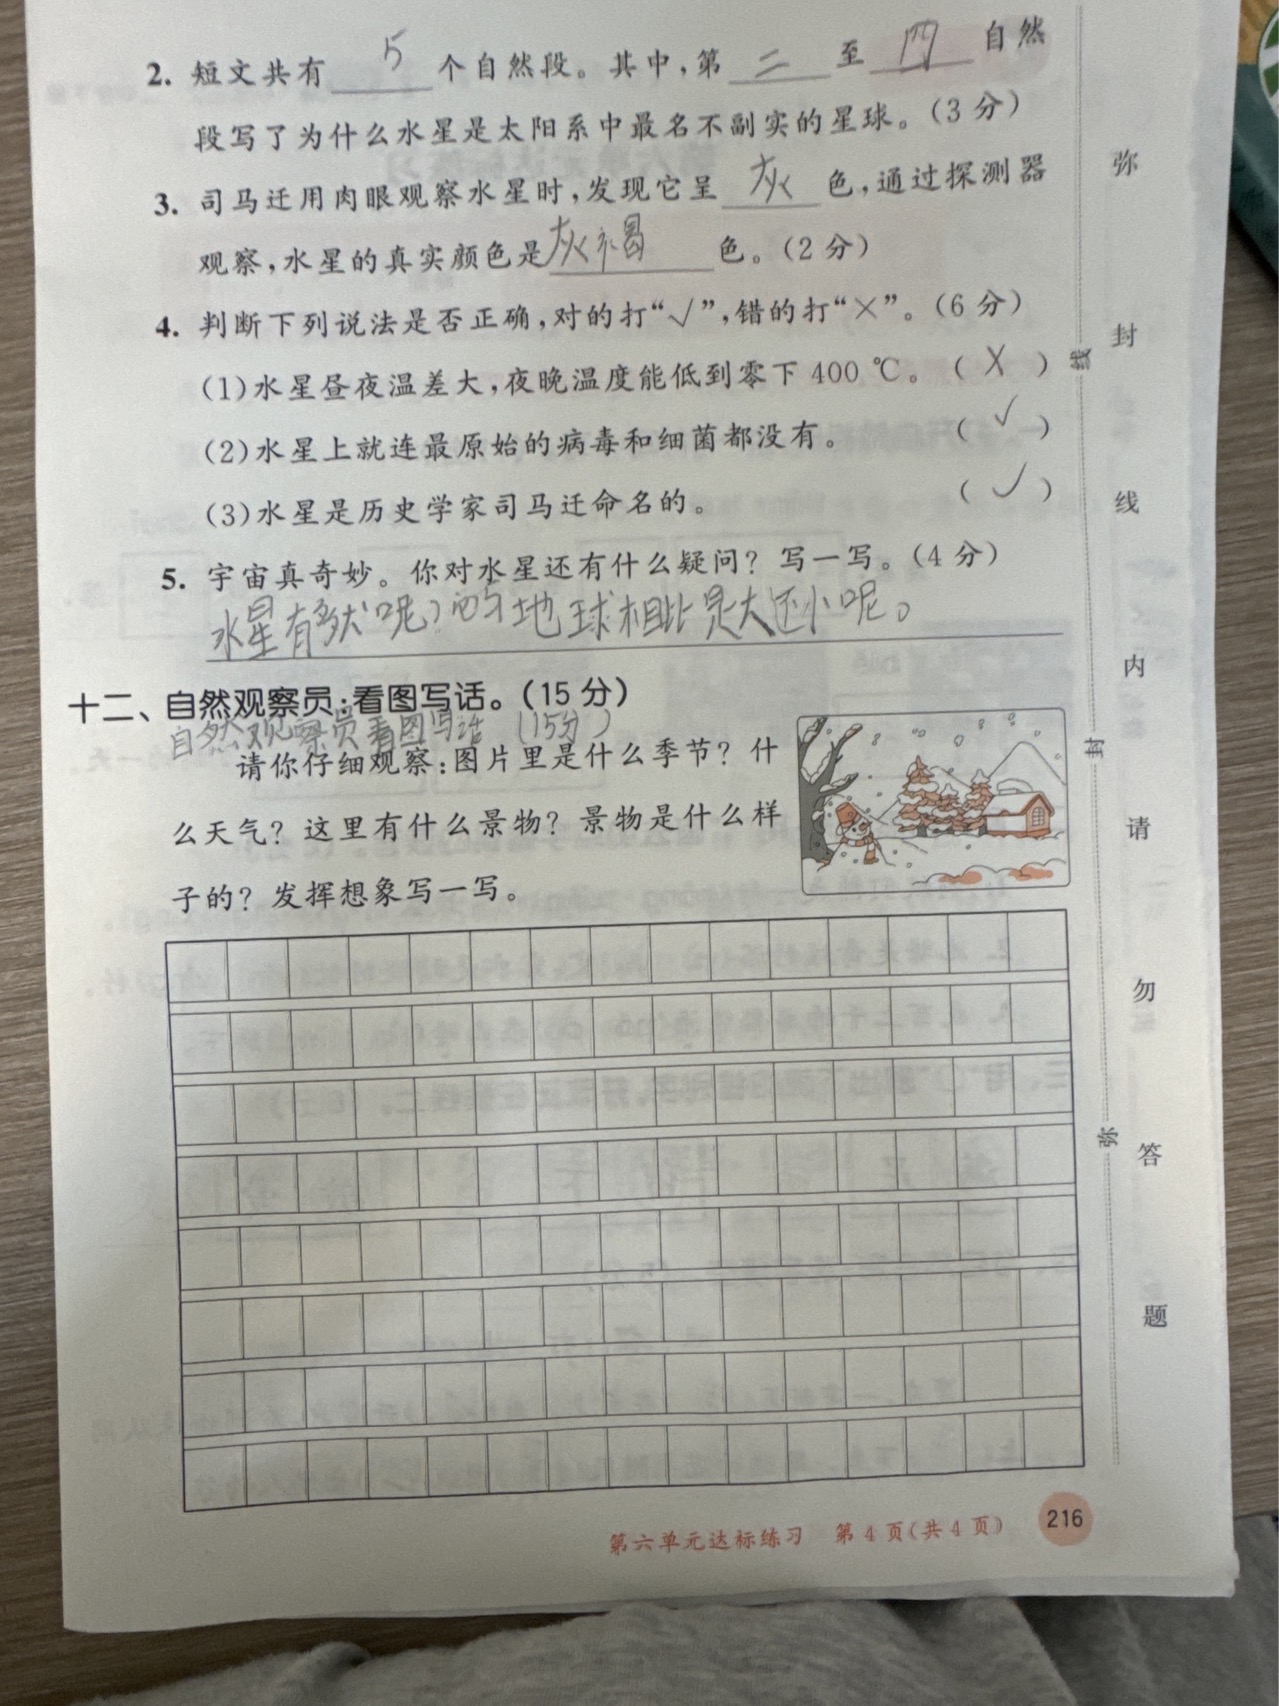 2. 短文共有 5 个自然段。其中,第 二 至 四 自然
段写了为什么水星是太阳系中最名不副实的星球。(3 分)
3. 司马迁用肉眼观察水星时,发现它呈 灰 色,通过探测器
观察,水星的真实颜色是 灰褐 色。(2 分)
4. 判断下列说法是否正确,对的打“√”,错的打“×”。(6 分)
(1)水星昼夜温差大,夜晚温度能低到零下 400 ℃。( X )
(2)水星上就连最原始的病毒和细菌都没有。( ✓ )
(3)水星是历史学家司马迁命名的。( ✓ )
5. 宇宙真奇妙。你对水星还有什么疑问?写一写。(4 分)
水星有多大呢?与地球相比是大还小呢。
十二、自然观察员:看图写话。(15 分)
自然观察员看图写话 (15分)
请你仔细观察:图片里是什么季节?什
么天气?这里有什么景物?景物是什么样
子的?发挥想象写一写。
第六单元达标练习 第 4 页(共 4 页) 216
弥 封 线 内 请 勿 答 题
线 封 弥